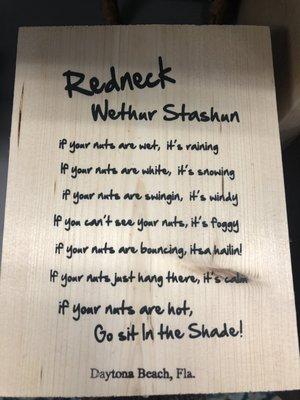 Redneck
Wethur Stashun
if your nuts are wet, it's raining
If your nuts are white, it's snowing
if your nuts are swingin, it's windy
If you can't see your nuts, it's foggy
if your nuts are bouncing, itsa hailin!
If your nuts just hang there, it's calm
if your nuts are hot,
Go sit In the Shade!
Daytona Beach, Fla.